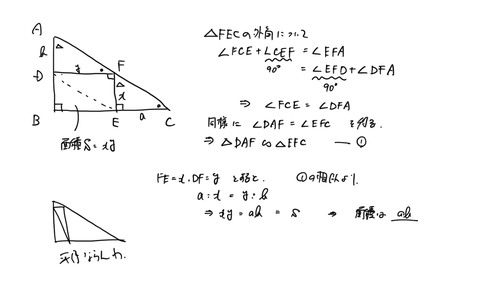 A
b
D
y
F
x
B
E
a
C
面積S=xy
△FECの外角について
∠FCE+∠CEF=∠EFA
90°
=∠EFD+∠DFA
90°
⇒ ∠FCE=∠DFA
同様に ∠DAF=∠EFC を得る.
⇒ △DAF∽△EFC ―①
FE=x, DF=y と置くと. ①の相似より.
a:x=y:b
⇒ xy=ab=S ⇒ 面積は ab